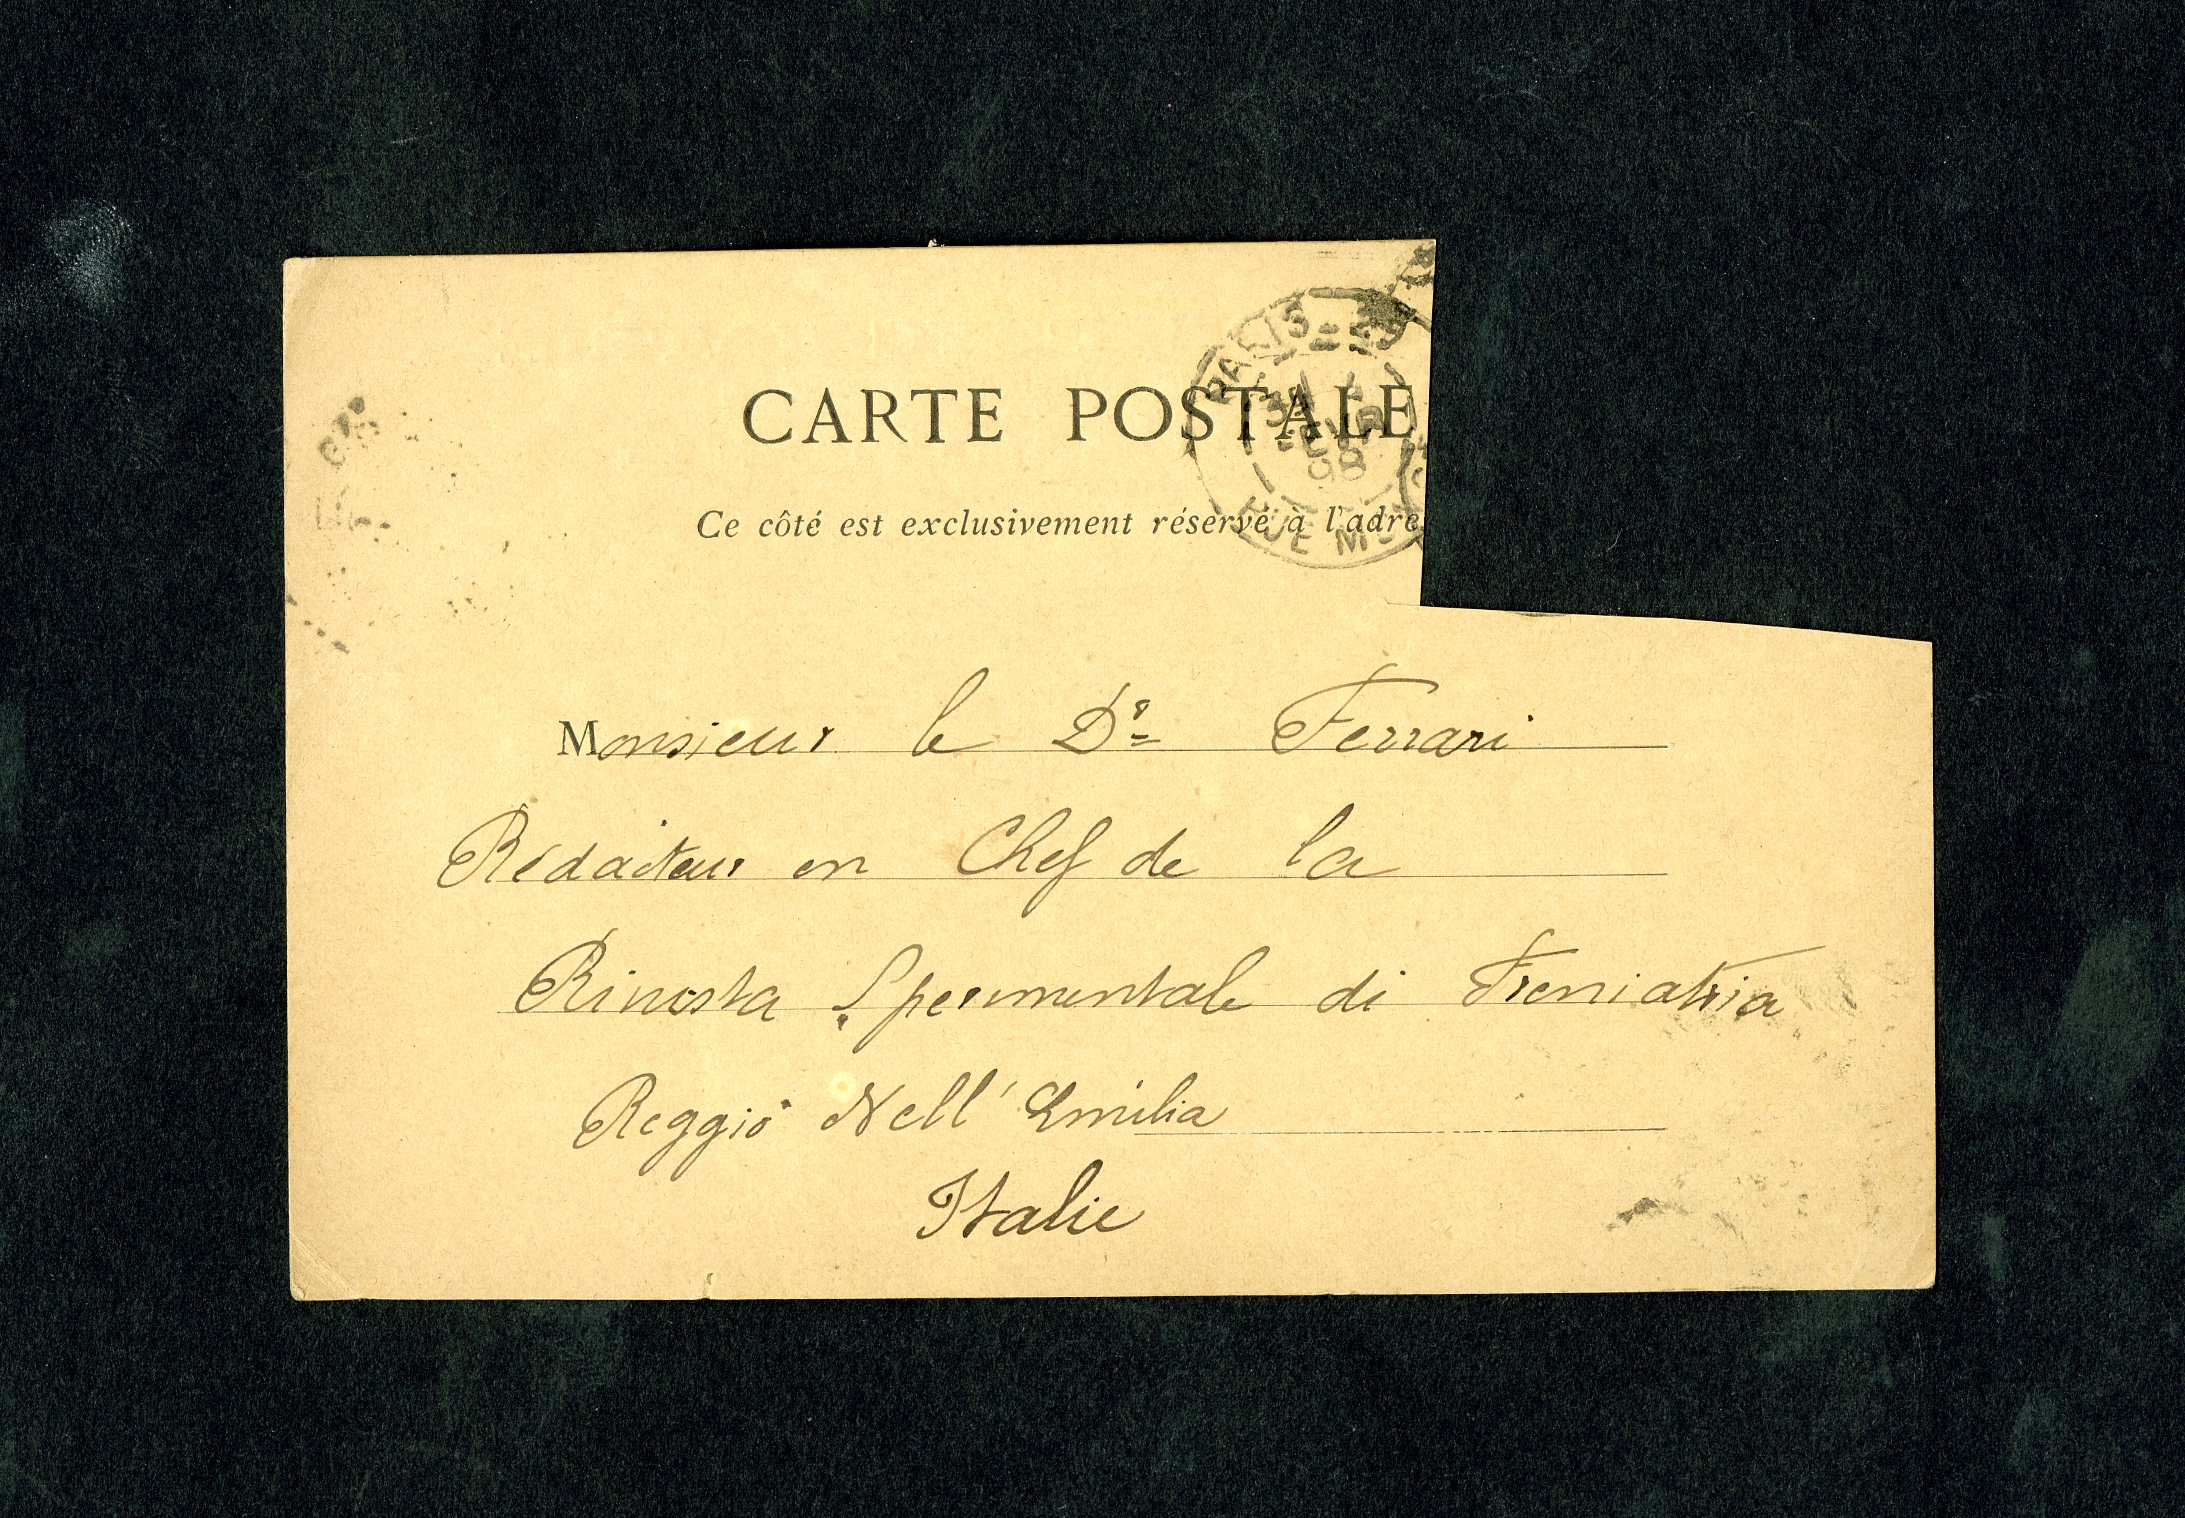 CARTE POSTALE
Ce côté est exclusivement réservé à l'adre
PARIS
98
RUE M
Monsieur le Dr Ferrari
Rédacteur en Chef de la
Rivista Sperimentale di Freniatria
Reggio Nell' Emilia
Italie